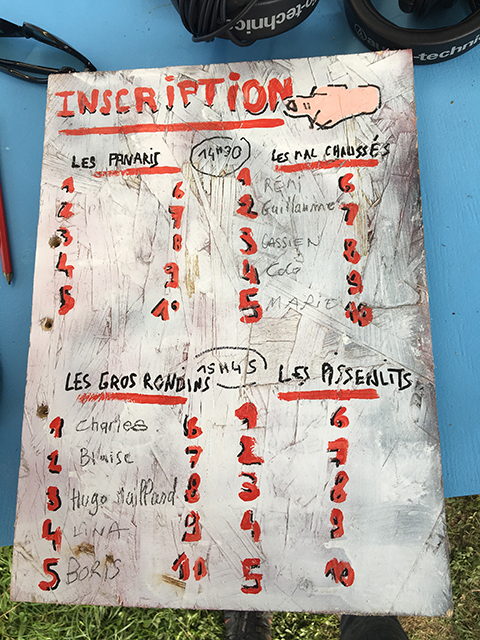 o-technica
-technica
INSCRIPTION
LES PANARIS
14H30
LES MAL CHAUSSÉS
1 6 1 REMI 6
2 7 2 Guillaume 7
3 8 3 CASSIEN 8
4 9 4 Coco 9
5 10 5 MARIE 10
LES GROS RONDINS
15H45
LES PISSENLITS
1 Charles 6 1 6
2 Blaise 7 2 7
3 Hugo Maillard 8 3 8
4 LINA 9 4 9
5 BORIS 10 5 10